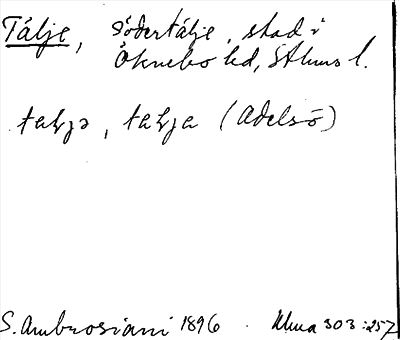 Tälje, Södertälje, stad i
Öknebo hd, Sthlms l.
taljə, talja (Adelsö)
S. Ambrosiani 1896. Ulma 303:257